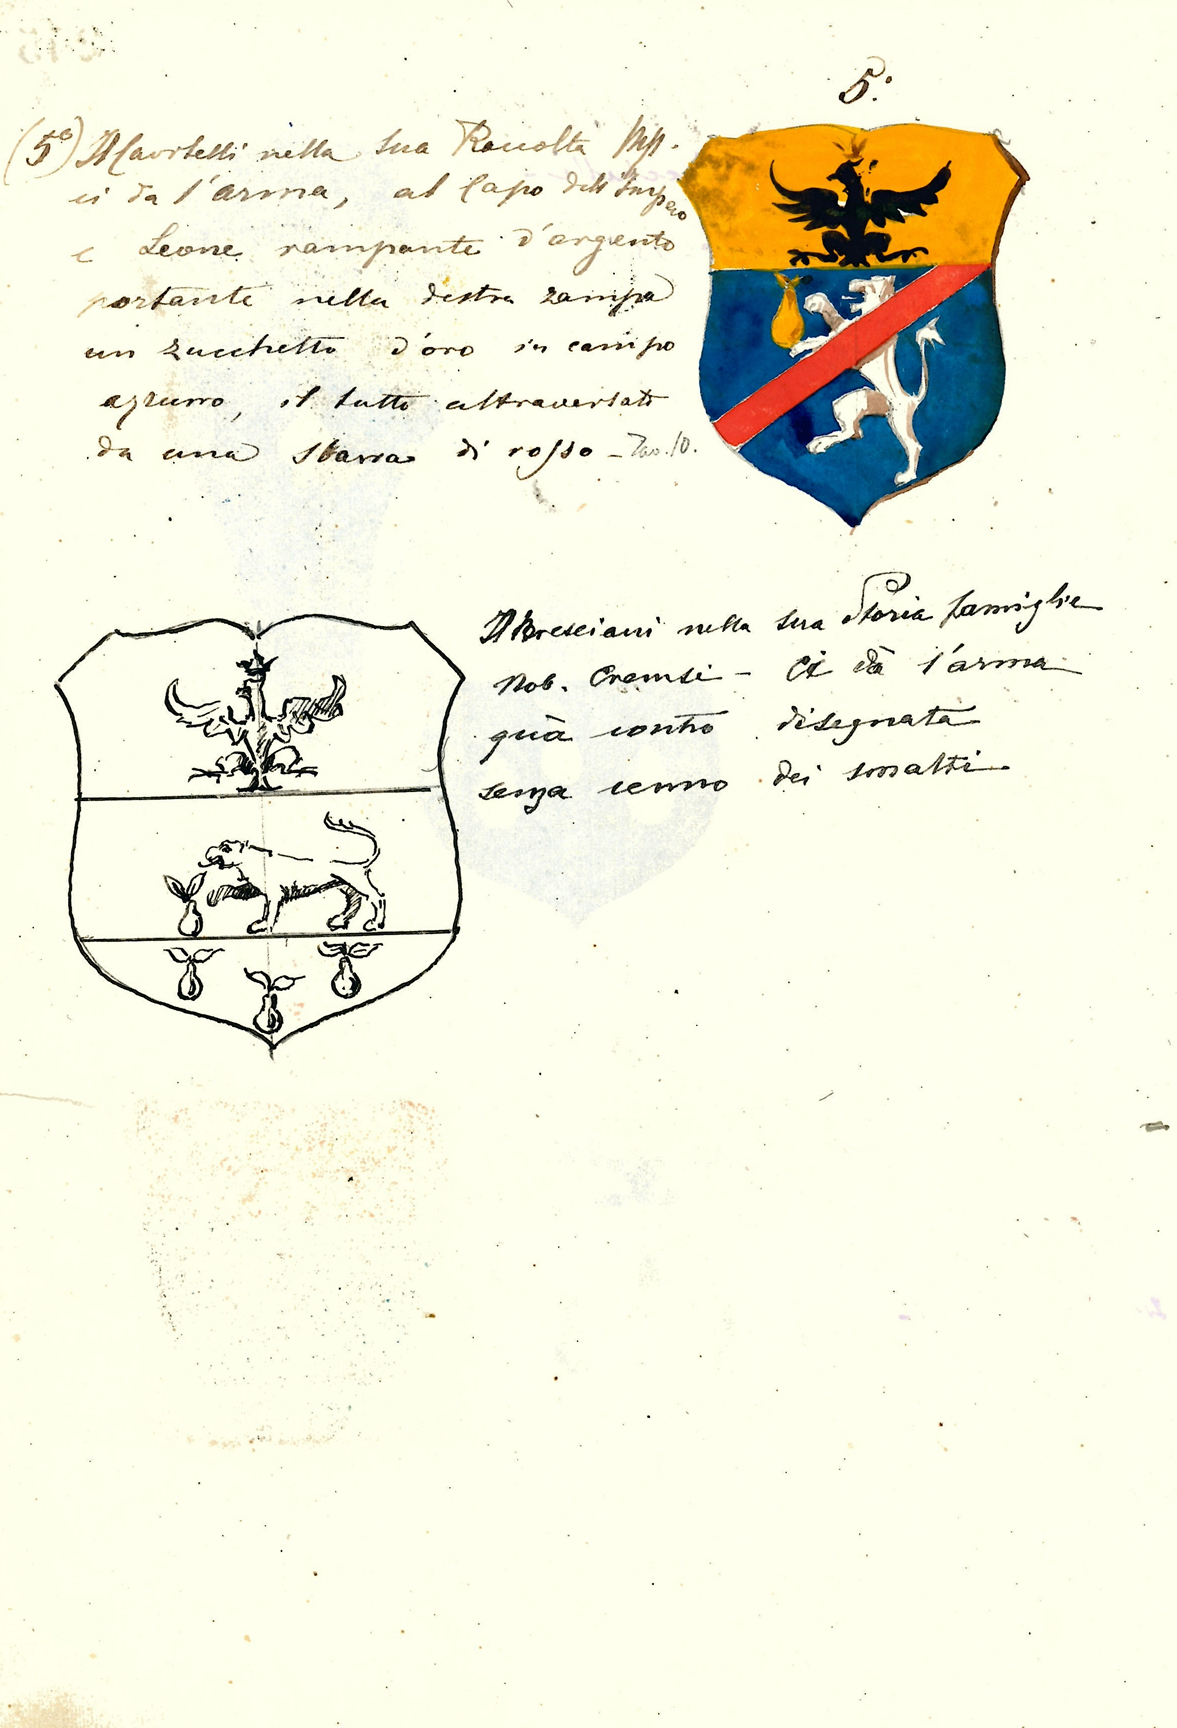 5.°
(5°) Il Cavitelli nella sua Raccolta Mss.
ci da l'arma, al Capo dell'Impero
e Leone rampante d'argento
portante nella destra zampa
un zucchetto d'oro in campo
azzurro, il tutto attraversato
da una sbarra di rosso - Tav. 10.
Il Bresciani nella sua Storia famiglie
Nob. Cremsi - Ci dà l'arma
quà contro disegnata
senza cenno dei smalti